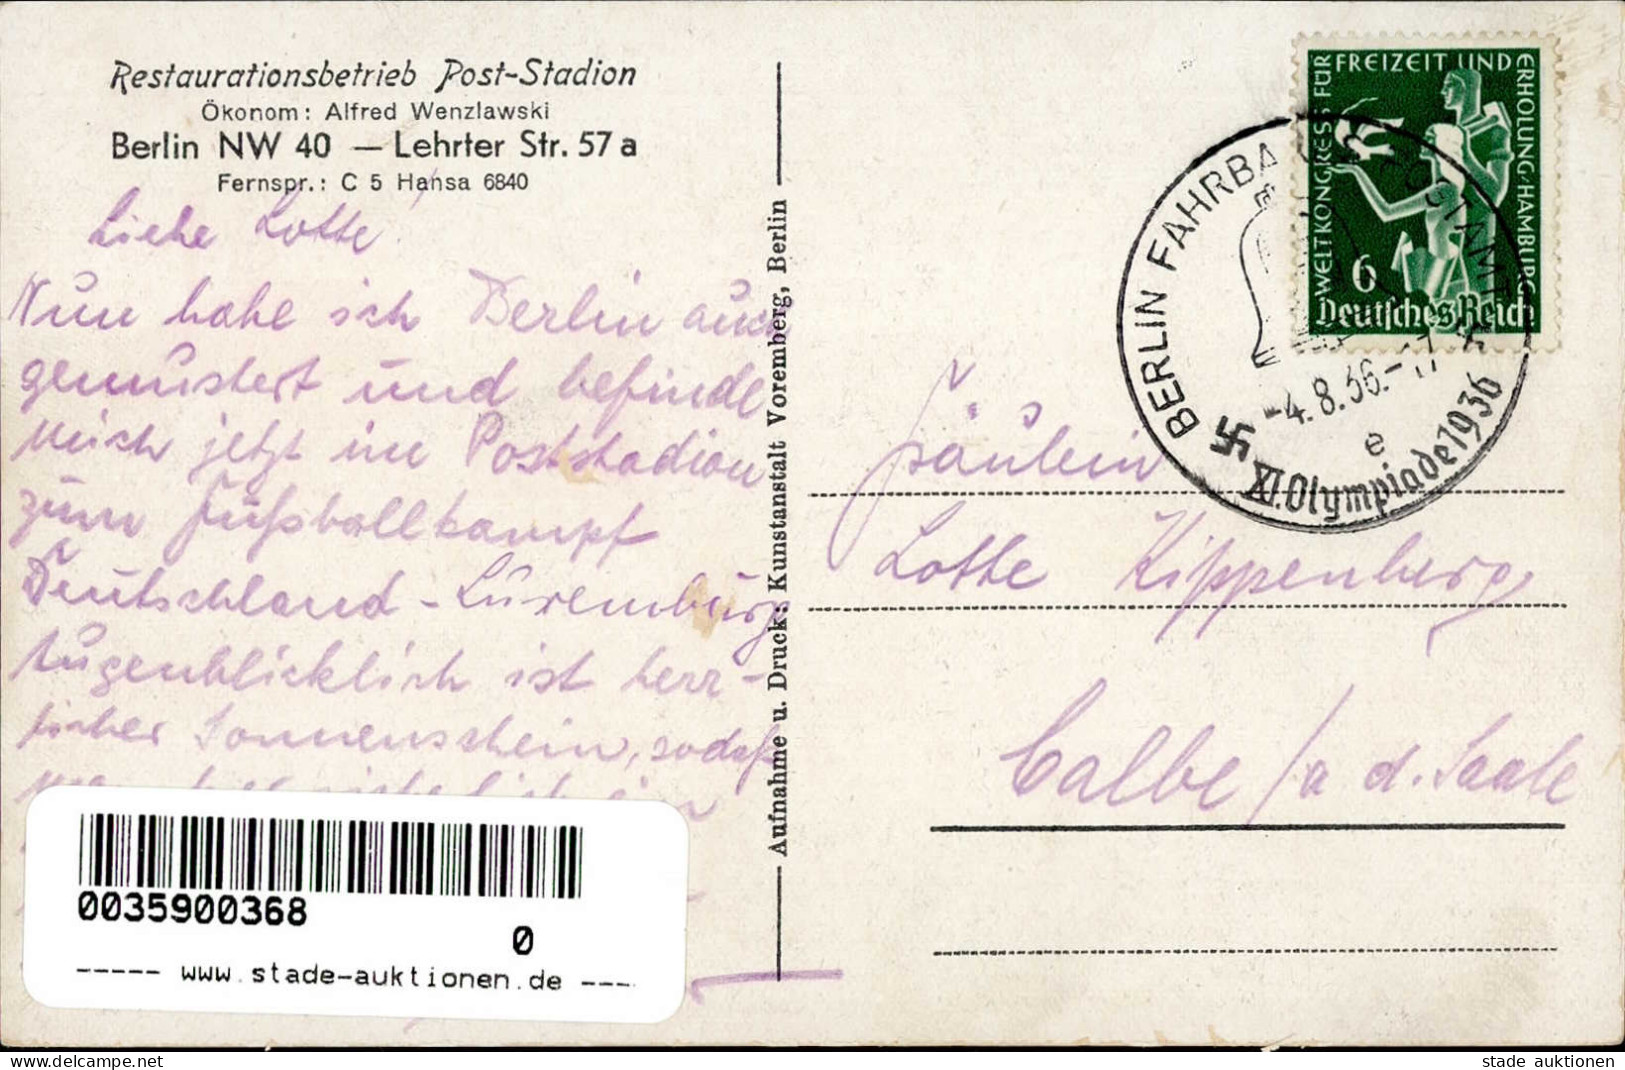 Restaurationsbetrieb Post-Stadion
Ökonom: Alfred Wenzlawski
Berlin NW 40 — Lehrter Str. 57 a
Fernspr.: C 5 Hansa 6840
Liebe Lotte!
Nun habe ich Berlin auch
gemustert und befinde
mich jetzt im Poststadion
zum Fußballkampf
Deutschland - Luxemburg
Augenblicklich ist herr-
licher Sonnenschein, sodaß
0035900368
0
----- www.stade-auktionen.de ---
Aufnahme u. Druck: Kunstanstalt Voremberg, Berlin
WELTKONGRESS FÜR FREIZEIT UND ERHOLUNG·HAMBURG
6
Deutsches Reich
BERLIN FAHRBA POSTAMT
-4.8.36.-17
e
XI. Olympiade 1936
Fräulein
Lotte Kippenberg
Calbe / a d. Saale
https://www.delcampe.net
stade auktionen